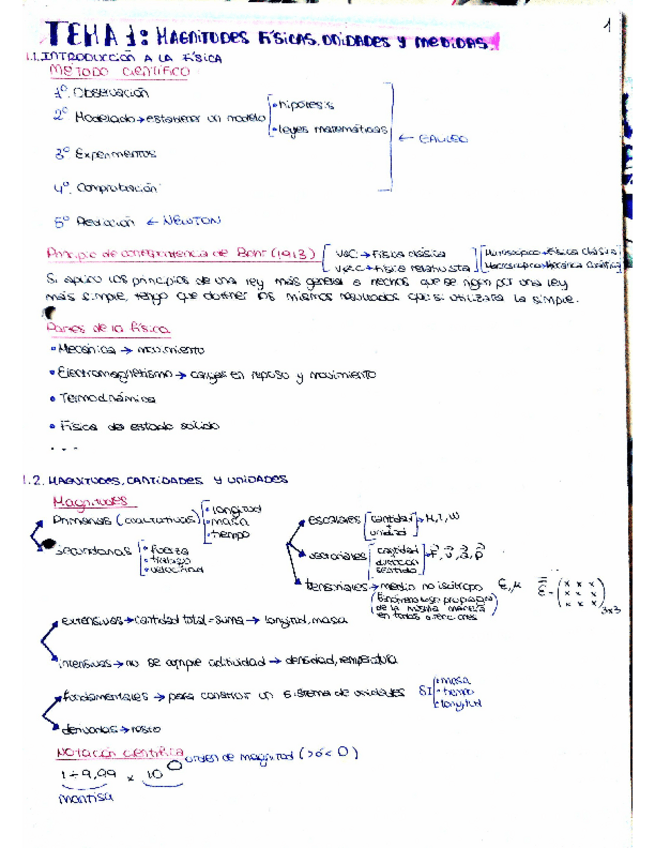 1
TEMA 1: MAGNITUDES FÍSICAS. UNIDADES Y MEDIDAS.
1.1. INTRODUCCIÓN A LA FÍSICA
MÉTODO CIENTÍFICO
1º. Observación
2º Modelado → establecer un modelo
• hipótesis
• leyes matemáticas
← GALILEO
3º Experimentos
4º. Comprobación
5º Revisión ← NEWTON
Principio de correspondencia de Bohr (1913)
→ Física clásica
Si aplico los principios de una ley más general a hechos que se rigen por una ley
más simple, tengo que obtener los mismos resultados que si utilizara la simple.
Partes de la física
• Mecánica → movimiento
• Electromagnetismo → cargas en reposo y movimiento
• Termodinámica
• Física de estado sólido
. . .
1.2. MAGNITUDES, CANTIDADES Y UNIDADES
Magnitudes
Primarias (cualitativas)
• longitud
• masa
• tiempo
secundarias
• fuerza
• trabajo
• velocidad
escalares
cantidad
unidad
→ M, T, W
vectoriales
cantidad
dirección
sentido
tensoriales → medio no isótropo ε, μ
de la misma manera
en todas direcciones
3x3
extensivas → cantidad total = suma → longitud, masa
intensivas → no se cumple aditividad → densidad, temperatura
fundamentales → para construir un sistema de unidades SI
• masa
• tiempo
• longitud
derivadas → resto
Notación científica
orden de magnitud (>0 ó < 0)
1 ÷ 9,99 x 10
mantisa